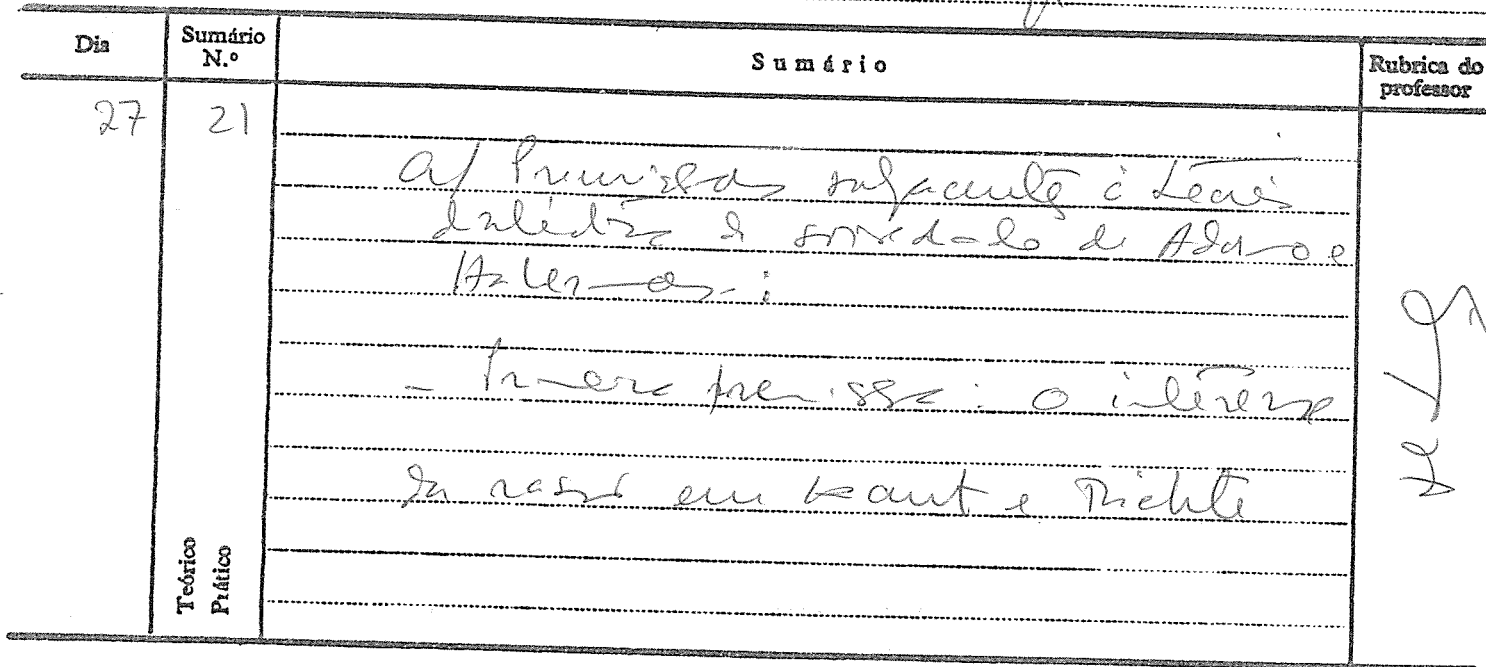 Dia
Sumário N.º
Sumário
Rubrica do professor
27
21
a/ Premissas subjacentes à teoria
dialética da sociedade de Adorno e
Habermas:
- Primeira premissa: o interesse
da razão em Kant e Fichte
Teórico
Prático